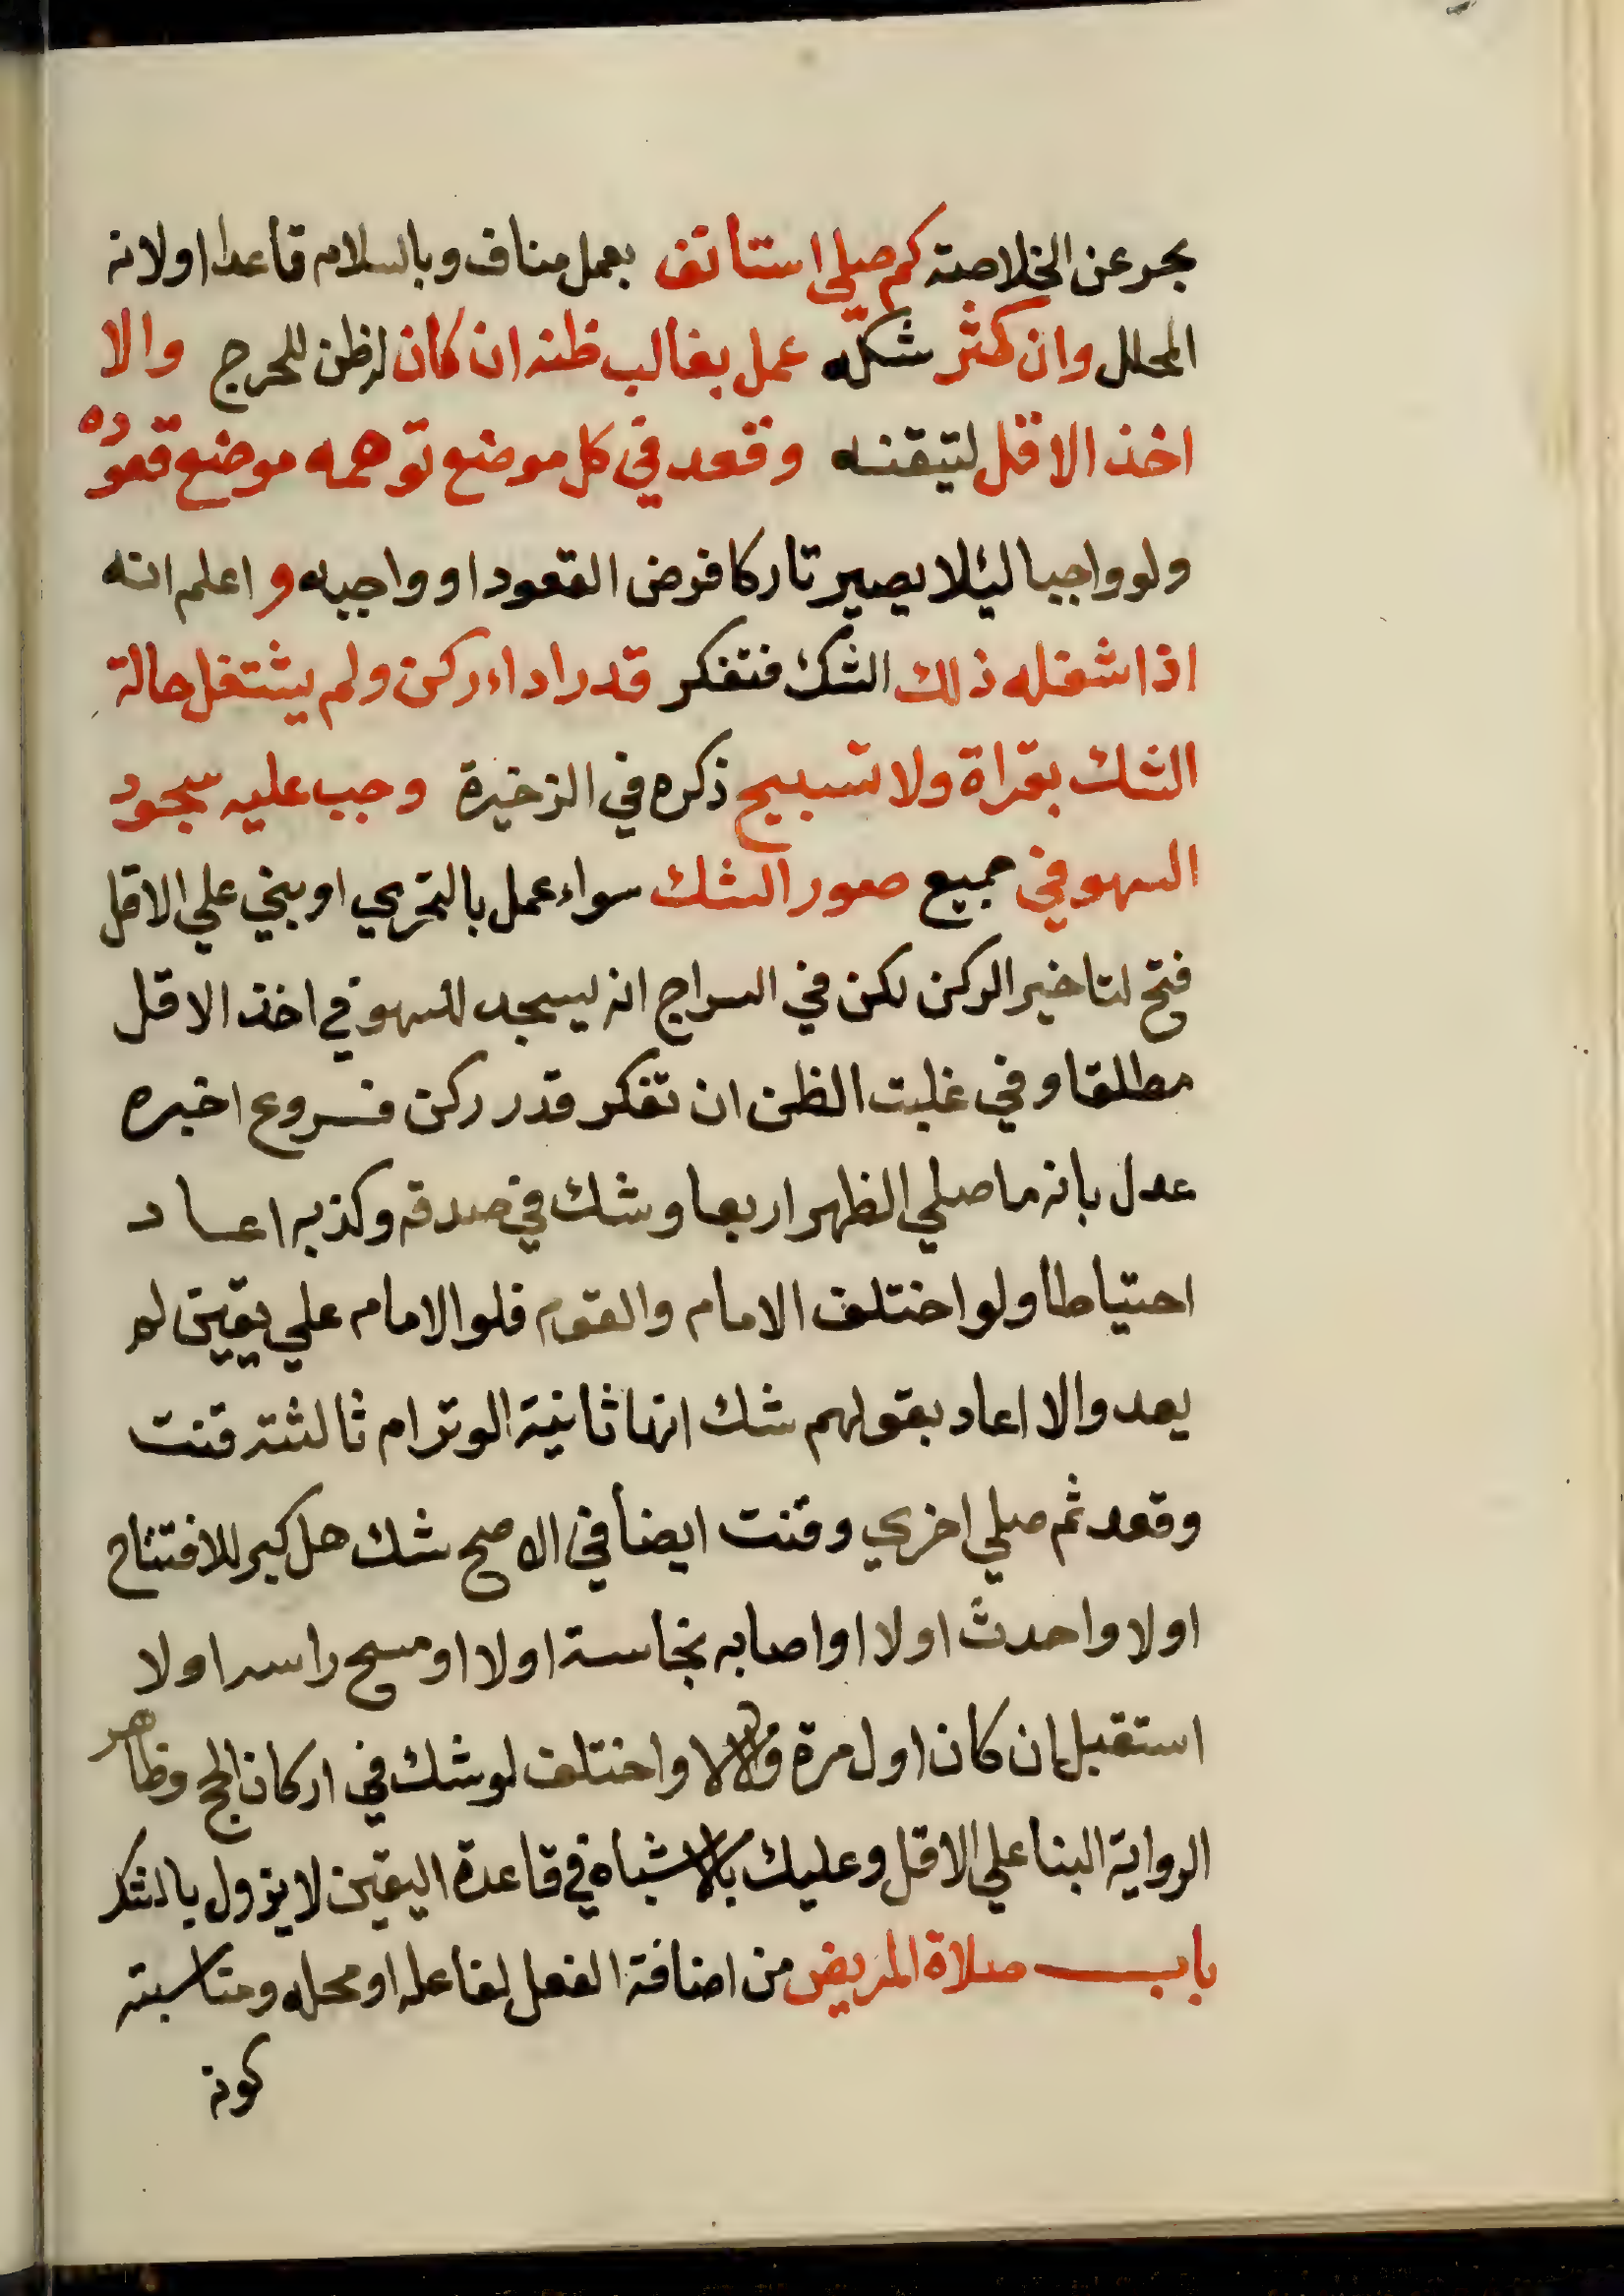 بحر عن الخلاصة كم صلي استانف بعمل مناف وبالسلام قاعدا اولانه
المحلل وان كثر شكله عمل بغالب ظنه ان كان له ظن للحرج والا
اخذ الاقل لتيقنه وقعد في كل موضع توهمه موضع قعوده
ولو واجبا ليئلا يصير تاركا فرض القعود او واجبه و اعلم انه
اذا شغله ذلك الشك فتفكر قدر اداء ركن ولم يشتغل حالة
الشك بقراة ولا تسبيح ذكره في الزخيرة وجب عليه سجود
السهو في جميع صور الشك سواء عمل بالتحري او بني علي الاقل
فتح لتاخير الركن لكن في السراج انه ليسجد للسهو في اخذ الاقل
مطلقا وفي غلبت الظن ان تفكر قدر ركن فروع اخبره
عدل بانه ما صلي الظهر اربعا وشك في صدقه وكذبه اعاد
احتياطا ولو اختلف الامام والقوم فلو الامام علي يقين لم
يعد والا اعاد بقولهم شك انها ثانية الوتر ام ثالثته قنت
وقعد ثم صلي اخري وقنت ايضا في الاصح شك هل كبر للافتتاح
اولا واحدث اولا او اصابه نجاسة اولا او مسح راسه اولا
استقبل ان كان اول مرة والا لا واختلف لو شك في اركان الحج وظاهر
الرواية البنا علي الاقل وعليك بالاشباه في قاعدة اليقين لا يزول بالشك
باب صلاة المريض من اضافة الفعل لفاعله او محله ومناسبته
كونه